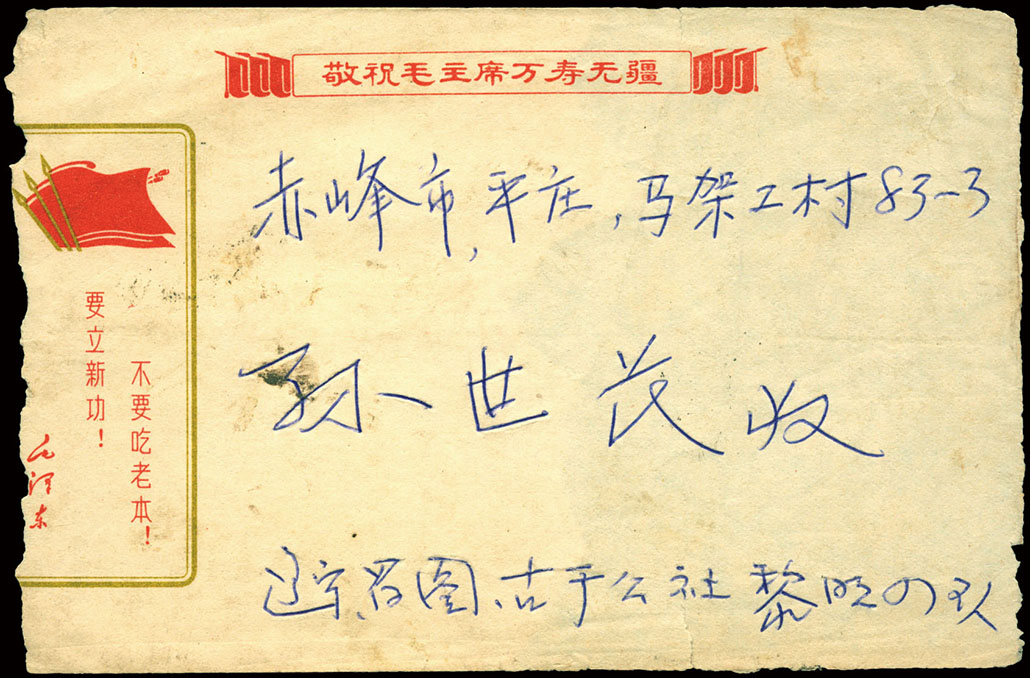 敬祝毛主席万寿无疆
赤峰市,平庄,马架工村83-3
孙世茂收
辽宁、昌图、古于公社 黎明四队
不要吃老本!
要立新功!
毛泽东